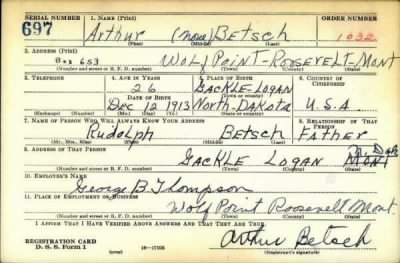 SERIAL NUMBER 1. NAME (Print) ORDER NUMBER
697 Arthur (None) Betsch 1032
(First) (Middle) (Last)
2. ADDRESS (Print)
Box 653 Wolf Point-Roosevelt-Mont
(Number and street or R. F. D. number) (Town) (County) (State)
3. TELEPHONE 4. AGE IN YEARS 5. PLACE OF BIRTH 6. COUNTRY OF CITIZENSHIP
26 Gackle-Logan
DATE OF BIRTH (Town) (County)
Dec 12 1913 North-Dakota U.S.A.
(Exchange) (Number) (Mo.) (Day) (Yr.) (State or country)
7. NAME OF PERSON WHO WILL ALWAYS KNOW YOUR ADDRESS 8. RELATIONSHIP OF THAT PERSON
Rudolph Betsch Father
(Mr., Mrs., Miss) (First) (Middle) (Last)
9. ADDRESS OF THAT PERSON N. Dak
Gackle Logan Mont
(Number and street or R. F. D. number) (Town) (County) (State)
10. EMPLOYER'S NAME
George B. Thompson
11. PLACE OF EMPLOYMENT OR BUSINESS
Wolf Point Roosevelt Mont.
(Number and street or R. F. D. number) (Town) (County) (State)
I AFFIRM THAT I HAVE VERIFIED ABOVE ANSWERS AND THAT THEY ARE TRUE.
REGISTRATION CARD
D. S. S. Form 1 (over) 16-17105 Arthur Betsch
(Registrant's signature)